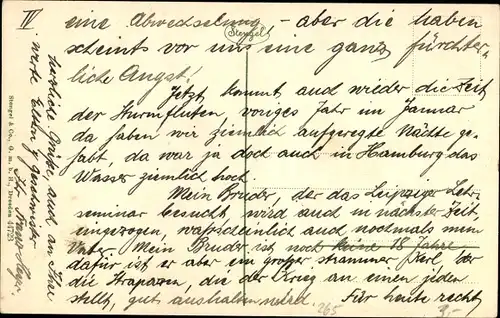 IV
eine Abwechselung, - aber die haben
scheints vor uns eine ganz fürchter-
liche Angst!
Jetzt kommt auch wieder die Zeit
der Sturmfluten, voriges Jahr im Januar
da haben wir ziemlich aufgeregte Nächte ge-
habt, da war ja doch auch in Hamburg das
Wasser ziemlich hoch.
Mein Bruder, der das Leipziger Lehr-
seminar besucht, wird auch in nächster Zeit,
eingezogen, wahrscheinlich auch nochmals mein
Vater. Mein Bruder ist noch keine 18 Jahre
dafür ist er aber ein großer strammer Kerl, der
die Strapazen, die der Krieg an einen jeden
stellt, gut aushalten wird. Für heute recht
herzliche Grüße, auch an Ihre
werte Eltern, Geschwister
Ihr
Stengel & Co., G. m. b. H., Dresden
Stengel
265